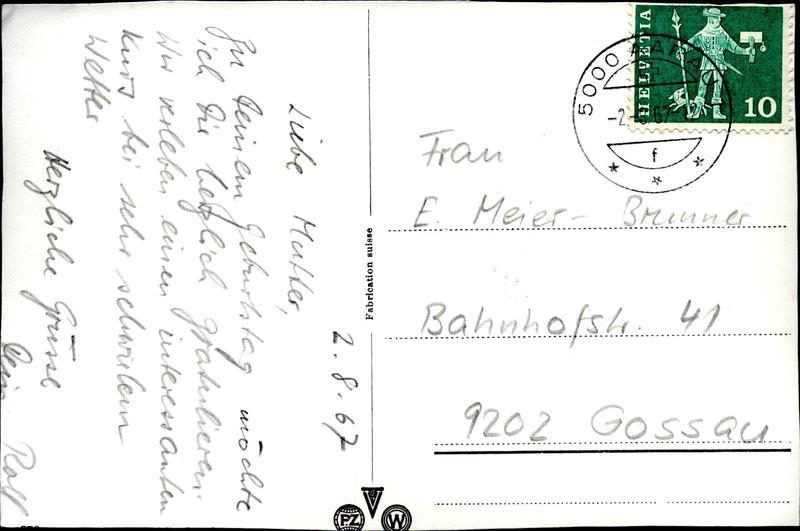 2.8.67
Liebe Mutter,
Zu Deinem Geburtstag möchte
ich Dir herzlich gratulieren.
Wir erleben einen interessanten
Kurs bei sehr schwülem
Wetter
Herzliche Grüsse
Dein Rolf
Fabrication suisse
PZ W
HELVETIA
10
5000 AARAU
-2.-8.67-12
f
Frau
E. Meier-Brunner
Bahnhofstr. 41
9202 Gossau